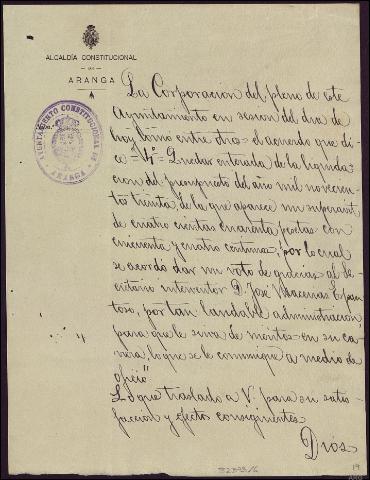 ALCALDÍA CONSTITUCIONAL
DE
ARANGA
AYUNTAMIENTO CONSTITUCIONAL DE
ARANGA
La Corporación del pleno de este
Ayuntamiento en sesión del dia de
hoy tomó entre otros el acuerdo que di
ce = 4º = Quedar enterada de la liquida
cion del presupuesto del año mil novecien
tos treinta, de la que aparece un superavit
de cuatro cientas cincuenta pesetas con
cincuenta y cuatro centimos, por lo cual
se acordó dar un voto de gracias al Se
cretario interventor D. José Macenas
por tan laudable administracion,
para que le sirva de meritos en su ca
rrera, lo que se le comunique a medio de
oficio"
Lo que traslado a V. para su satis
faccion y efectos consiguientes
Dios
32393/6
19